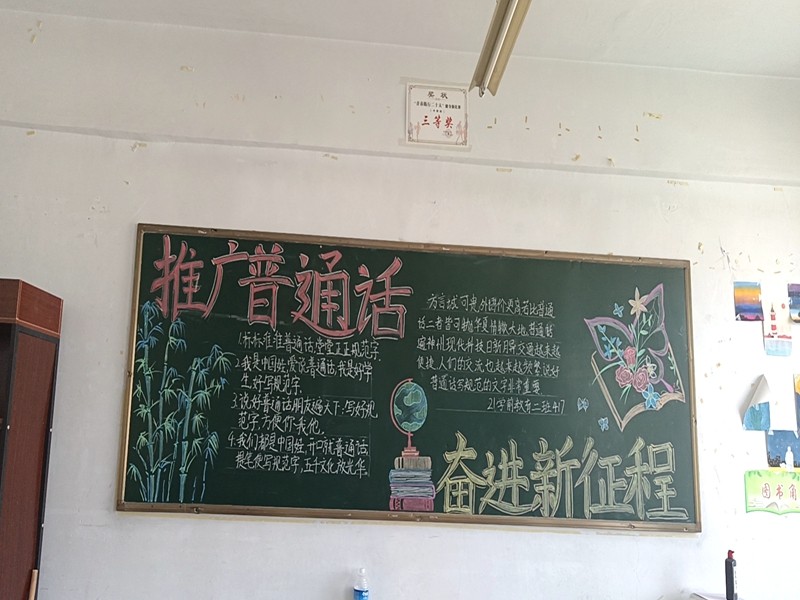 奖状
三等奖
推广普通话
1.标标准准普通话,堂堂正正规范字.
2.我是中国娃,爱说普通话,我是好学
生,好写规范字.
3.说好普通话,朋友遍天下;写好规
范字,方便你我他.
4.我们都是中国娃,开口就普通话,
提笔便写规范字,五千文化放光华.
方言城可贵,外语价更高,若比普通
话二者皆可抛
现代科技日新月异交通越来越
便捷,人们的交流也越来越频繁,说好
普通话写规范的文字非常重要
21学前教育二班 417
奋进新征程
图书角